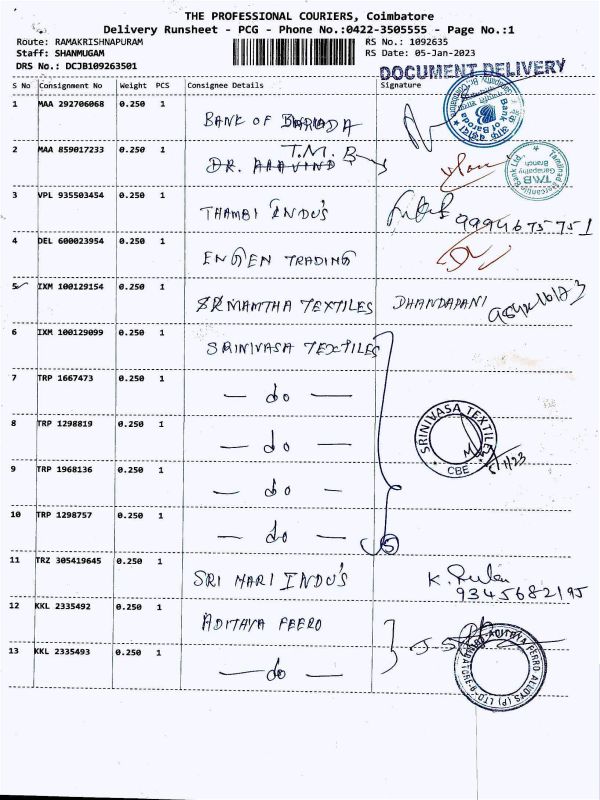 THE PROFESSIONAL COURIERS, Coimbatore
Delivery Runsheet - PCG - Phone No.:0422-3505555 - Page No.:1
Route: RAMAKRISHNAPURAM RS No.: 1092635
Staff: SHANMUGAM RS Date: 05-Jan-2023
DRS No.: DCJB109263501
DOCUMENT DELIVERY
S No Consignment No Weight PCS Consignee Details Signature
1 MAA 292706068 0.250 1 BANK OF BARODA
Bank of Baroda
2 MAA 859017233 0.250 1 T.M.B
DR. ARAVIND
Tamilnad Mercantile Bank Ltd., TMB Ganapathy Branch
3 VPL 935503454 0.250 1 THAMBI INDU'S 9994675751
4 DEL 600023954 0.250 1 ENGEN TRADING
5 IXM 100129154 0.250 1 SRIMAMTHA TEXTILES DHANDAPANI
6 IXM 100129099 0.250 1 SRINIVASA TEXTILES
7 TRP 1667473 0.250 1 — do —
8 TRP 1298819 0.250 1 — do —
SRINIVASA TEXTILES * CBE *
5/1/23
9 TRP 1968136 0.250 1 — do —
10 TRP 1298757 0.250 1 — do —
5
11 TRZ 305419645 0.250 1 SRI HARI INDU'S K.
9345682195
12 KKL 2335492 0.250 1 ADITHYA FERRO
13 KKL 2335493 0.250 1 — do —
ADITHYA FERRO ALLOYS (P) LTD